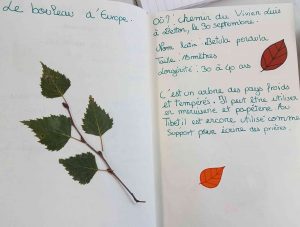 Le bouleau d'Europe.
Où? chemin du Vivier Louis
à Betton, le 30 septembre.
Nom latin: Betula pendula
Taille: 15 mètres
Longévité: 30 à 40 ans
C'est un arbre des pays froids
et tempérés. Il peut être utiliser
en menuiserie et papèterie. Au
Tibet il est encore utilisé comme
support pour écrire des prières.